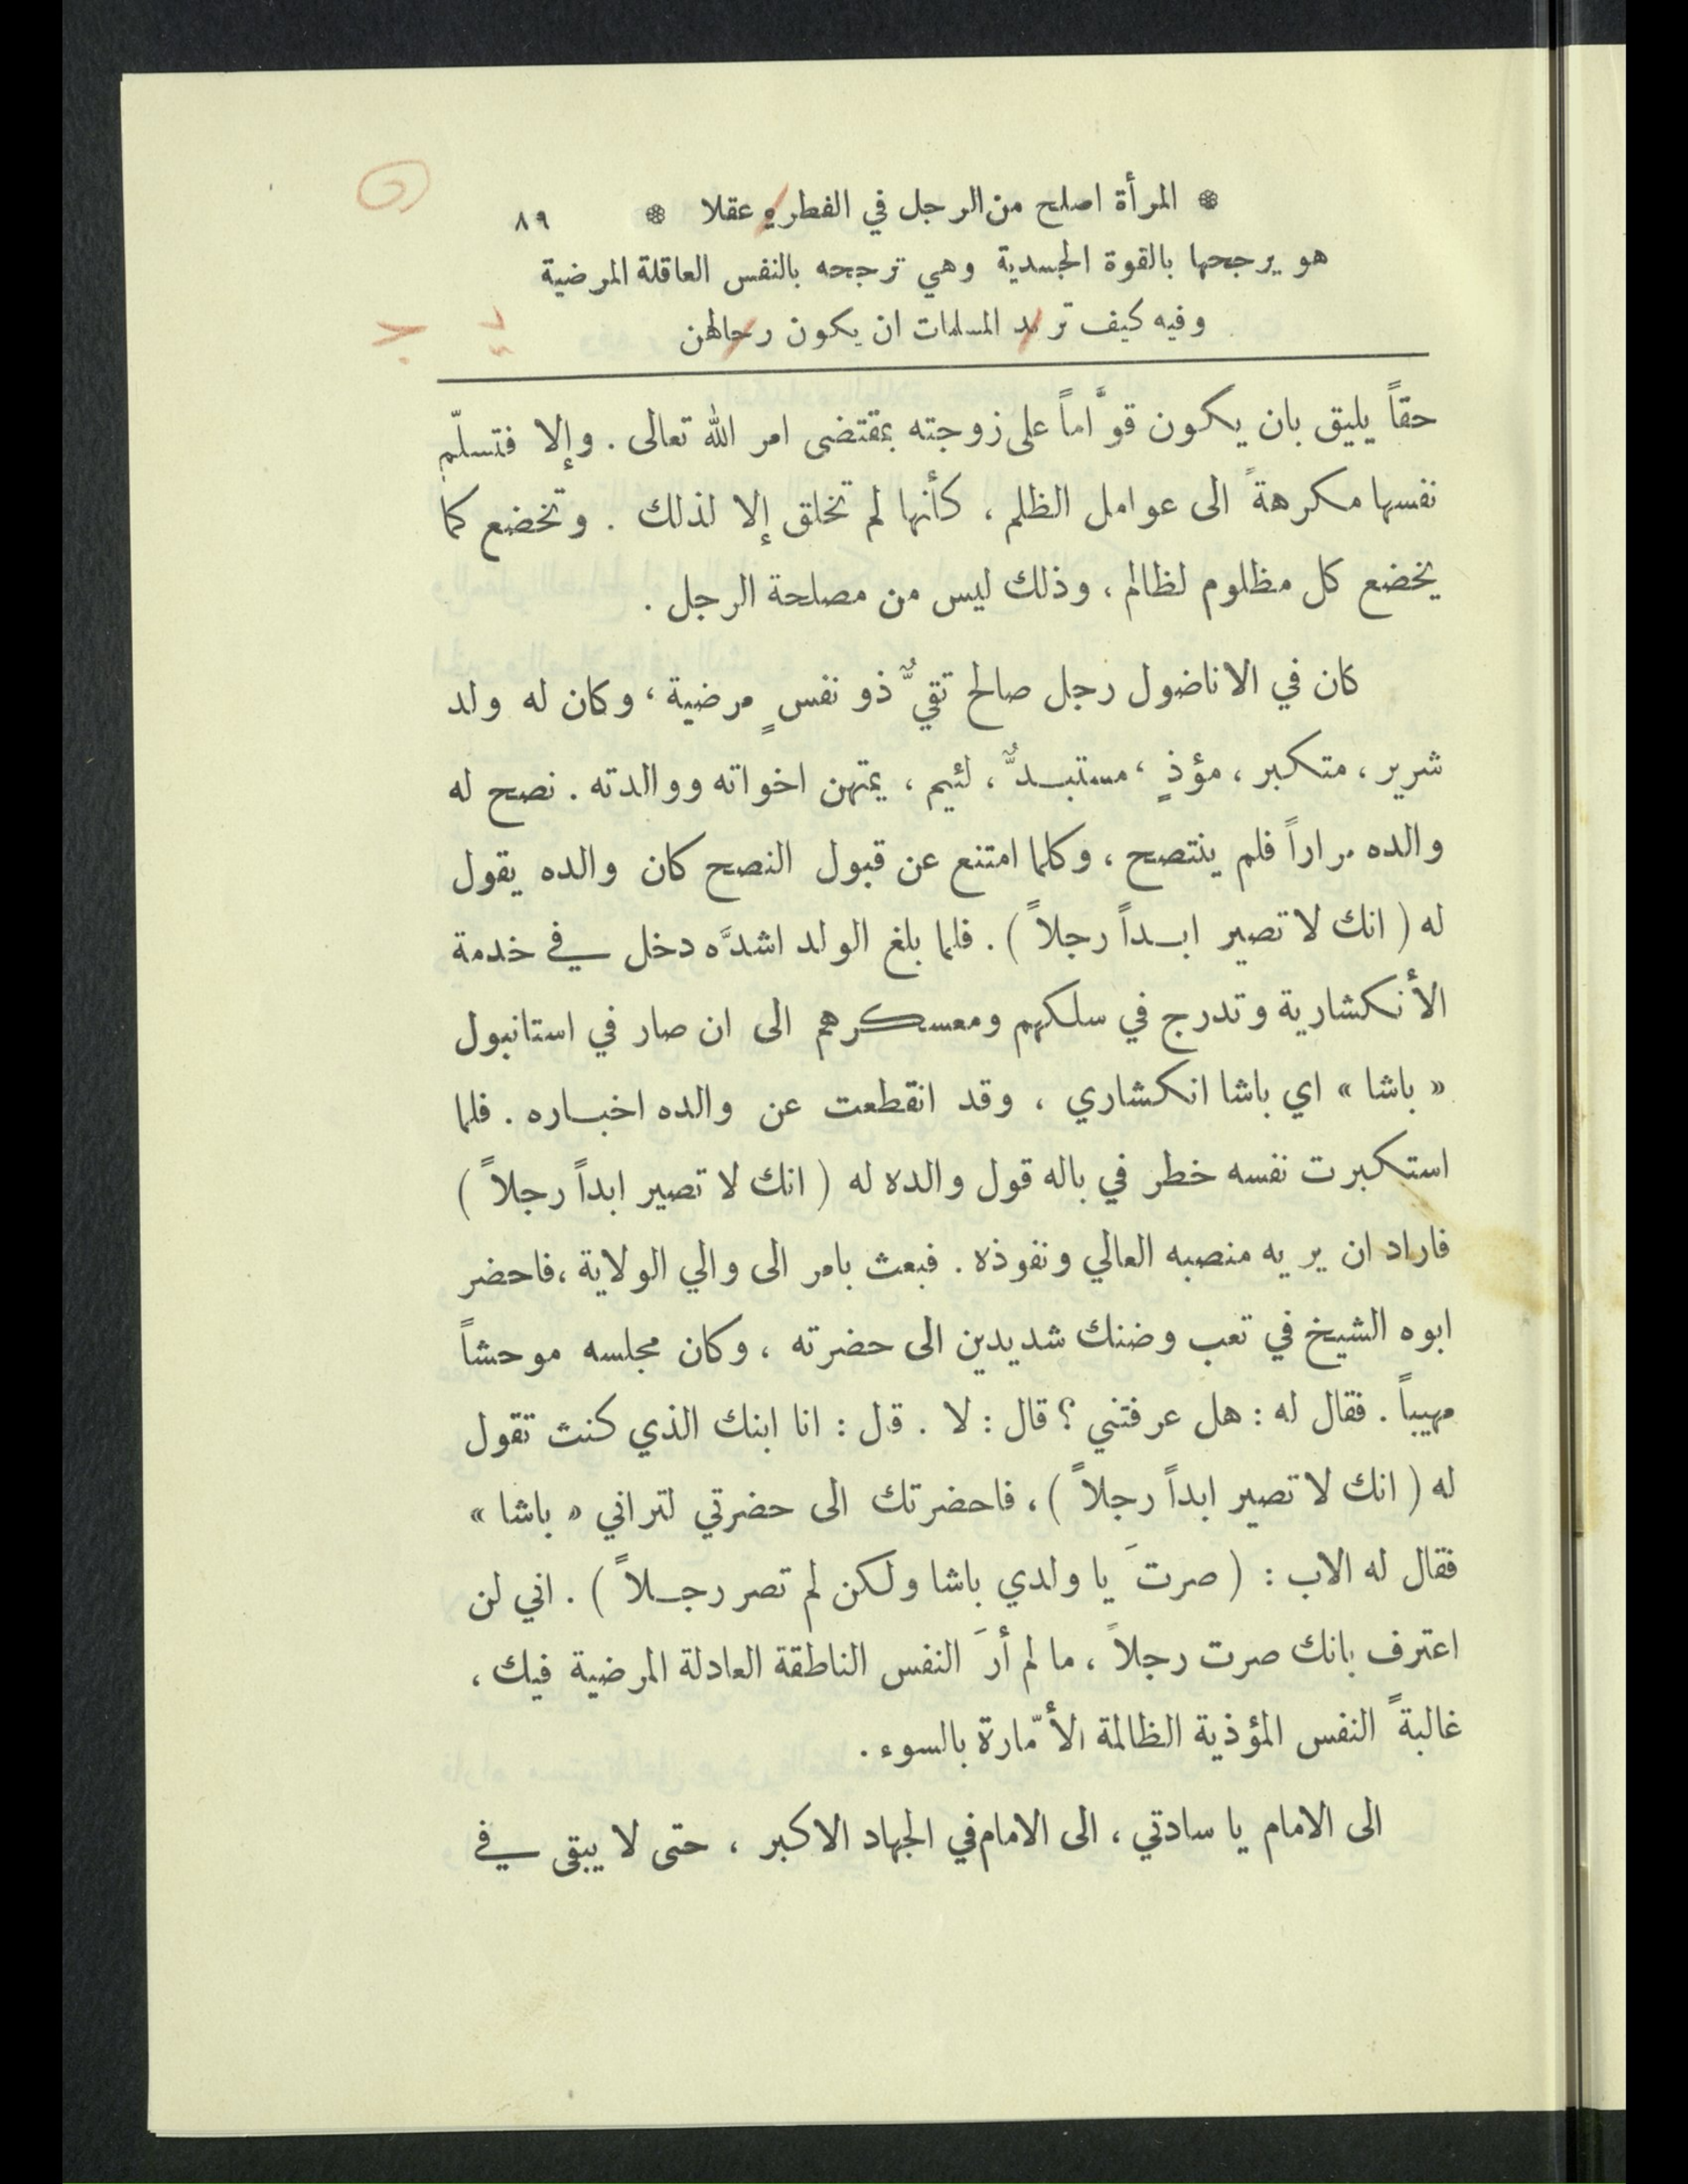 * المرأة اصلح من الرجل في الفطرة عقلا * ٨٩
هو يرجحها بالقوة الجسدية وهي ترجحه بالنفس العاقلة المرضية
وفيه كيف تريد المسلمات ان يكون رجالهن
حقاً يليق بان يكون قوَّاماً على زوجته بمقتضى امر الله تعالى . وإلا فتسلّم
نفسها مكرهةً الى عوامل الظلم ، كأنها لم تخلق إلا لذلك . وتخضع كما
يخضع كل مظلوم لظالم ، وذلك ليس من مصلحة الرجل .
كان في الاناضول رجل صالح تقيٌّ ذو نفسٍ مرضية ، وكان له ولد
شرير ، متكبر ، مؤذٍ ، مستبدٌّ ، لئيم ، يمتهن اخواته ووالدته . نصح له
والده مراراً فلم ينتصح ، وكلما امتنع عن قبول النصح كان والده يقول
له ( انك لا تصير ابداً رجلاً ) . فلما بلغ الولد اشدَّه دخل في خدمة
الأنكشارية وتدرج في سلكهم ومعسكرهم الى ان صار في استانبول
« باشا » اي باشا انكشاري ، وقد انقطعت عن والده اخباره . فلما
استكبرت نفسه خطر في باله قول والده له ( انك لا تصير ابداً رجلاً )
فاراد ان يريه منصبه العالي ونفوذه . فبعث بامر الى والي الولاية ، فاحضر
ابوه الشيخ في تعب وضنك شديدين الى حضرته ، وكان مجلسه موحشاً
مهيباً . فقال له : هل عرفتني ؟ قال : لا . قل : انا ابنك الذي كنت تقول
له ( انك لا تصير ابداً رجلاً ) ، فاحضرتك الى حضرتي لتراني « باشا »
فقال له الاب : ( صرتَ يا ولدي باشا ولكن لم تصر رجلاً ) . اني لن
اعترف بانك صرت رجلاً ، ما لم أرَ النفس الناطقة العادلة المرضية فيك ،
غالبةً النفس المؤذية الظالمة الأمّارة بالسوء .
الى الامام يا سادتي ، الى الامام في الجهاد الاكبر ، حتى لا يبقى في